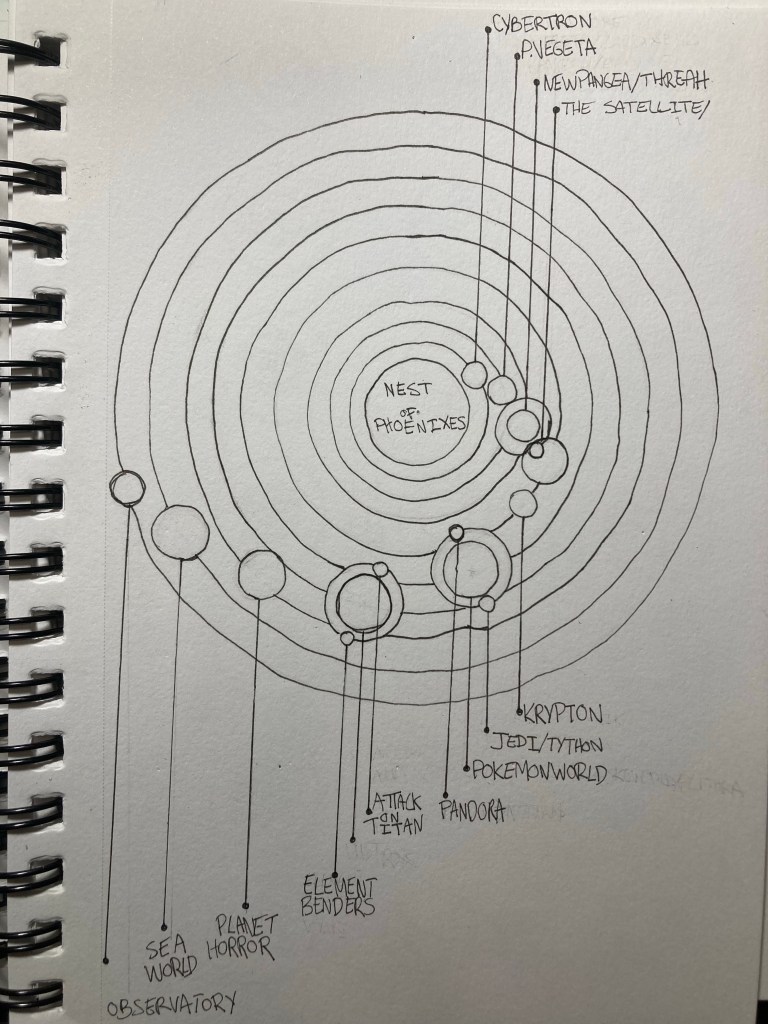 CYBERTRON
P.VEGETA
NEWPANGEA/THREAH
THE SATELLITE/
NEST
OF
PHOENIXES
KRYPTON
JEDI/TYTHON
POKEMONWORLD
PANDORA
ATTACK
ON
TITAN
ELEMENT
BENDERS
PLANET
HORROR
SEA
WORLD
OBSERVATORY